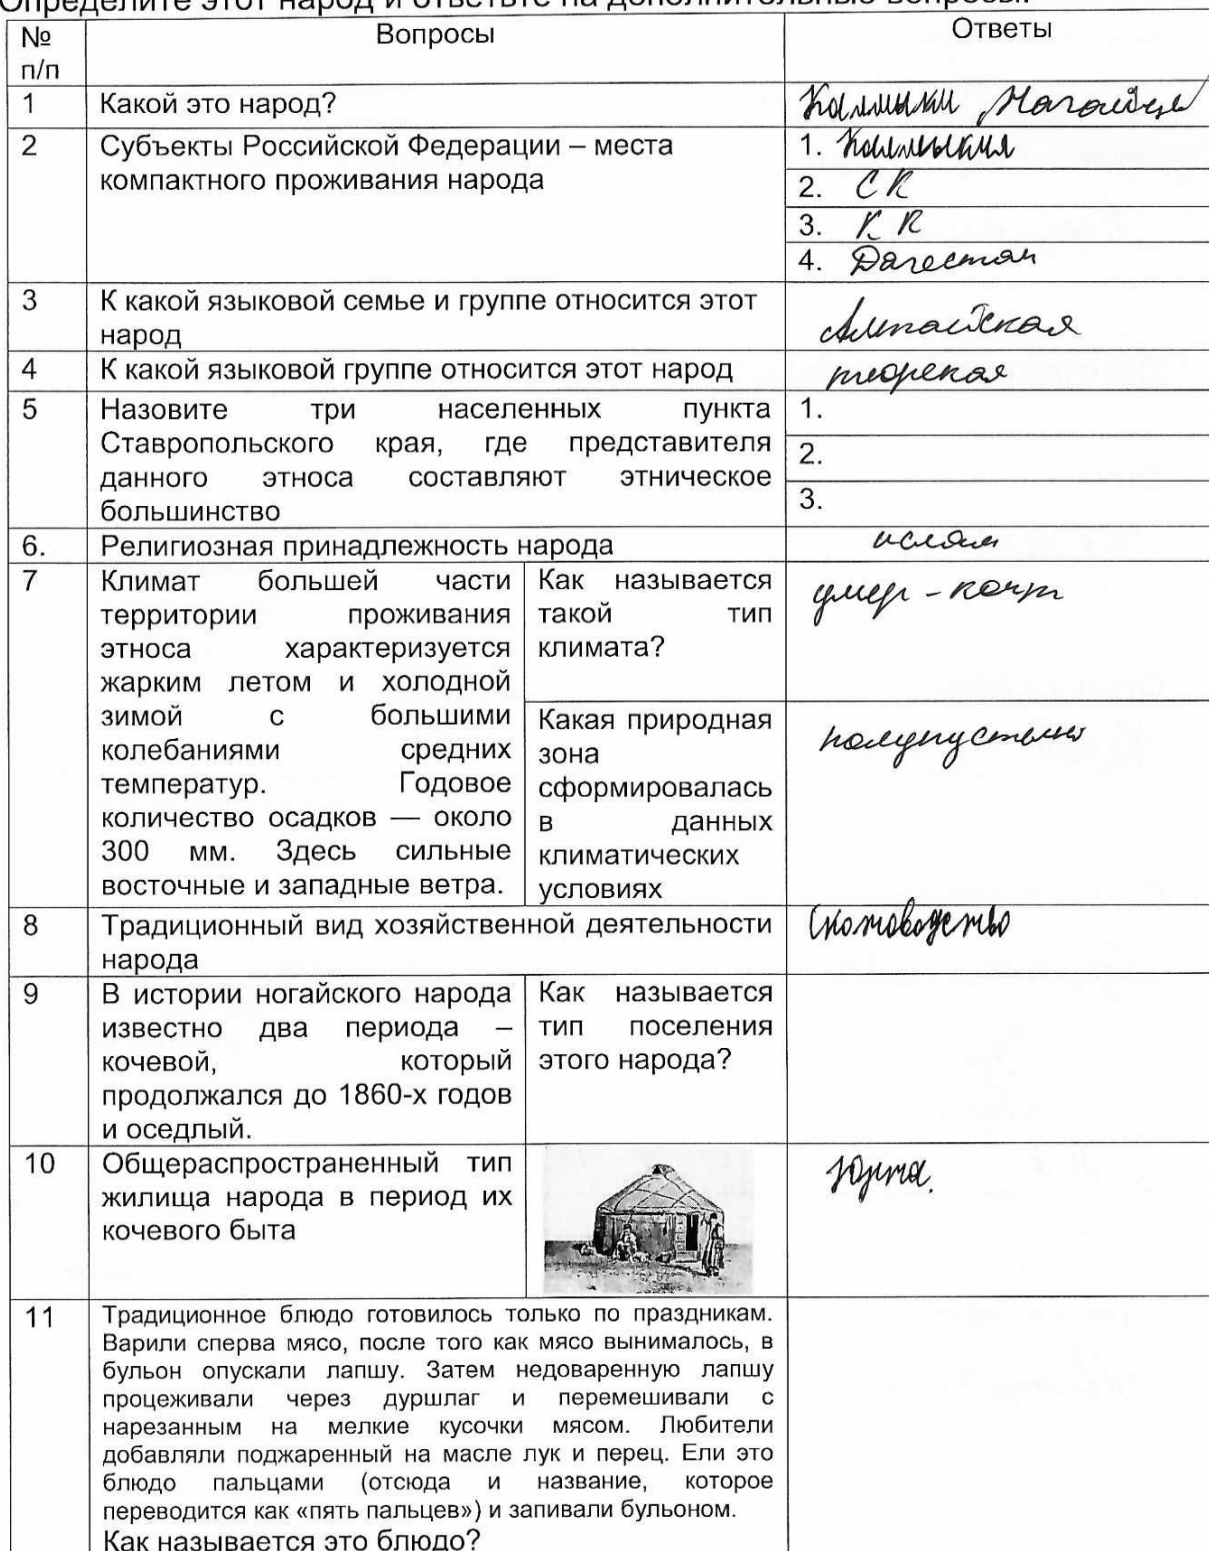 Определите этот народ и ответьте на дополнительные вопросы.
№ п/п Вопросы Ответы
1 Какой это народ? Калмыки Ногайцы
2 Субъекты Российской Федерации – места 1. Калмыкия
компактного проживания народа 2. СК
3. К К
4. Дагестан
3 К какой языковой семье и группе относится этот
народ Алтайская
4 К какой языковой группе относится этот народ тюрская
5 Назовите три населенных пункта 1.
Ставропольского края, где представителя
данного этноса составляют этническое 2.
большинство 3.
6. Религиозная принадлежность народа ислам
7 Климат большей части
территории проживания
этноса характеризуется
жарким летом и холодной
зимой с большими
колебаниями средних
температур. Годовое
количество осадков — около
300 мм. Здесь сильные
восточные и западные ветра.
Как называется
такой тип
климата?
умер - конт
Какая природная
зона
сформировалась
в данных
климатических
условиях
полупустыни
8 Традиционный вид хозяйственной деятельности
народа Скотоводство
9 В истории ногайского народа
известно два периода –
кочевой, который
продолжался до 1860-х годов
и оседлый.
Как называется
тип поселения
этого народа?
10 Общераспространенный тип
жилища народа в период их
кочевого быта
Юрта.
11 Традиционное блюдо готовилось только по праздникам.
Варили сперва мясо, после того как мясо вынималось, в
бульон опускали лапшу. Затем недоваренную лапшу
процеживали через дуршлаг и перемешивали с
нарезанным на мелкие кусочки мясом. Любители
добавляли поджаренный на масле лук и перец. Ели это
блюдо пальцами (отсюда и название, которое
переводится как «пять пальцев») и запивали бульоном.
Как называется это блюдо?